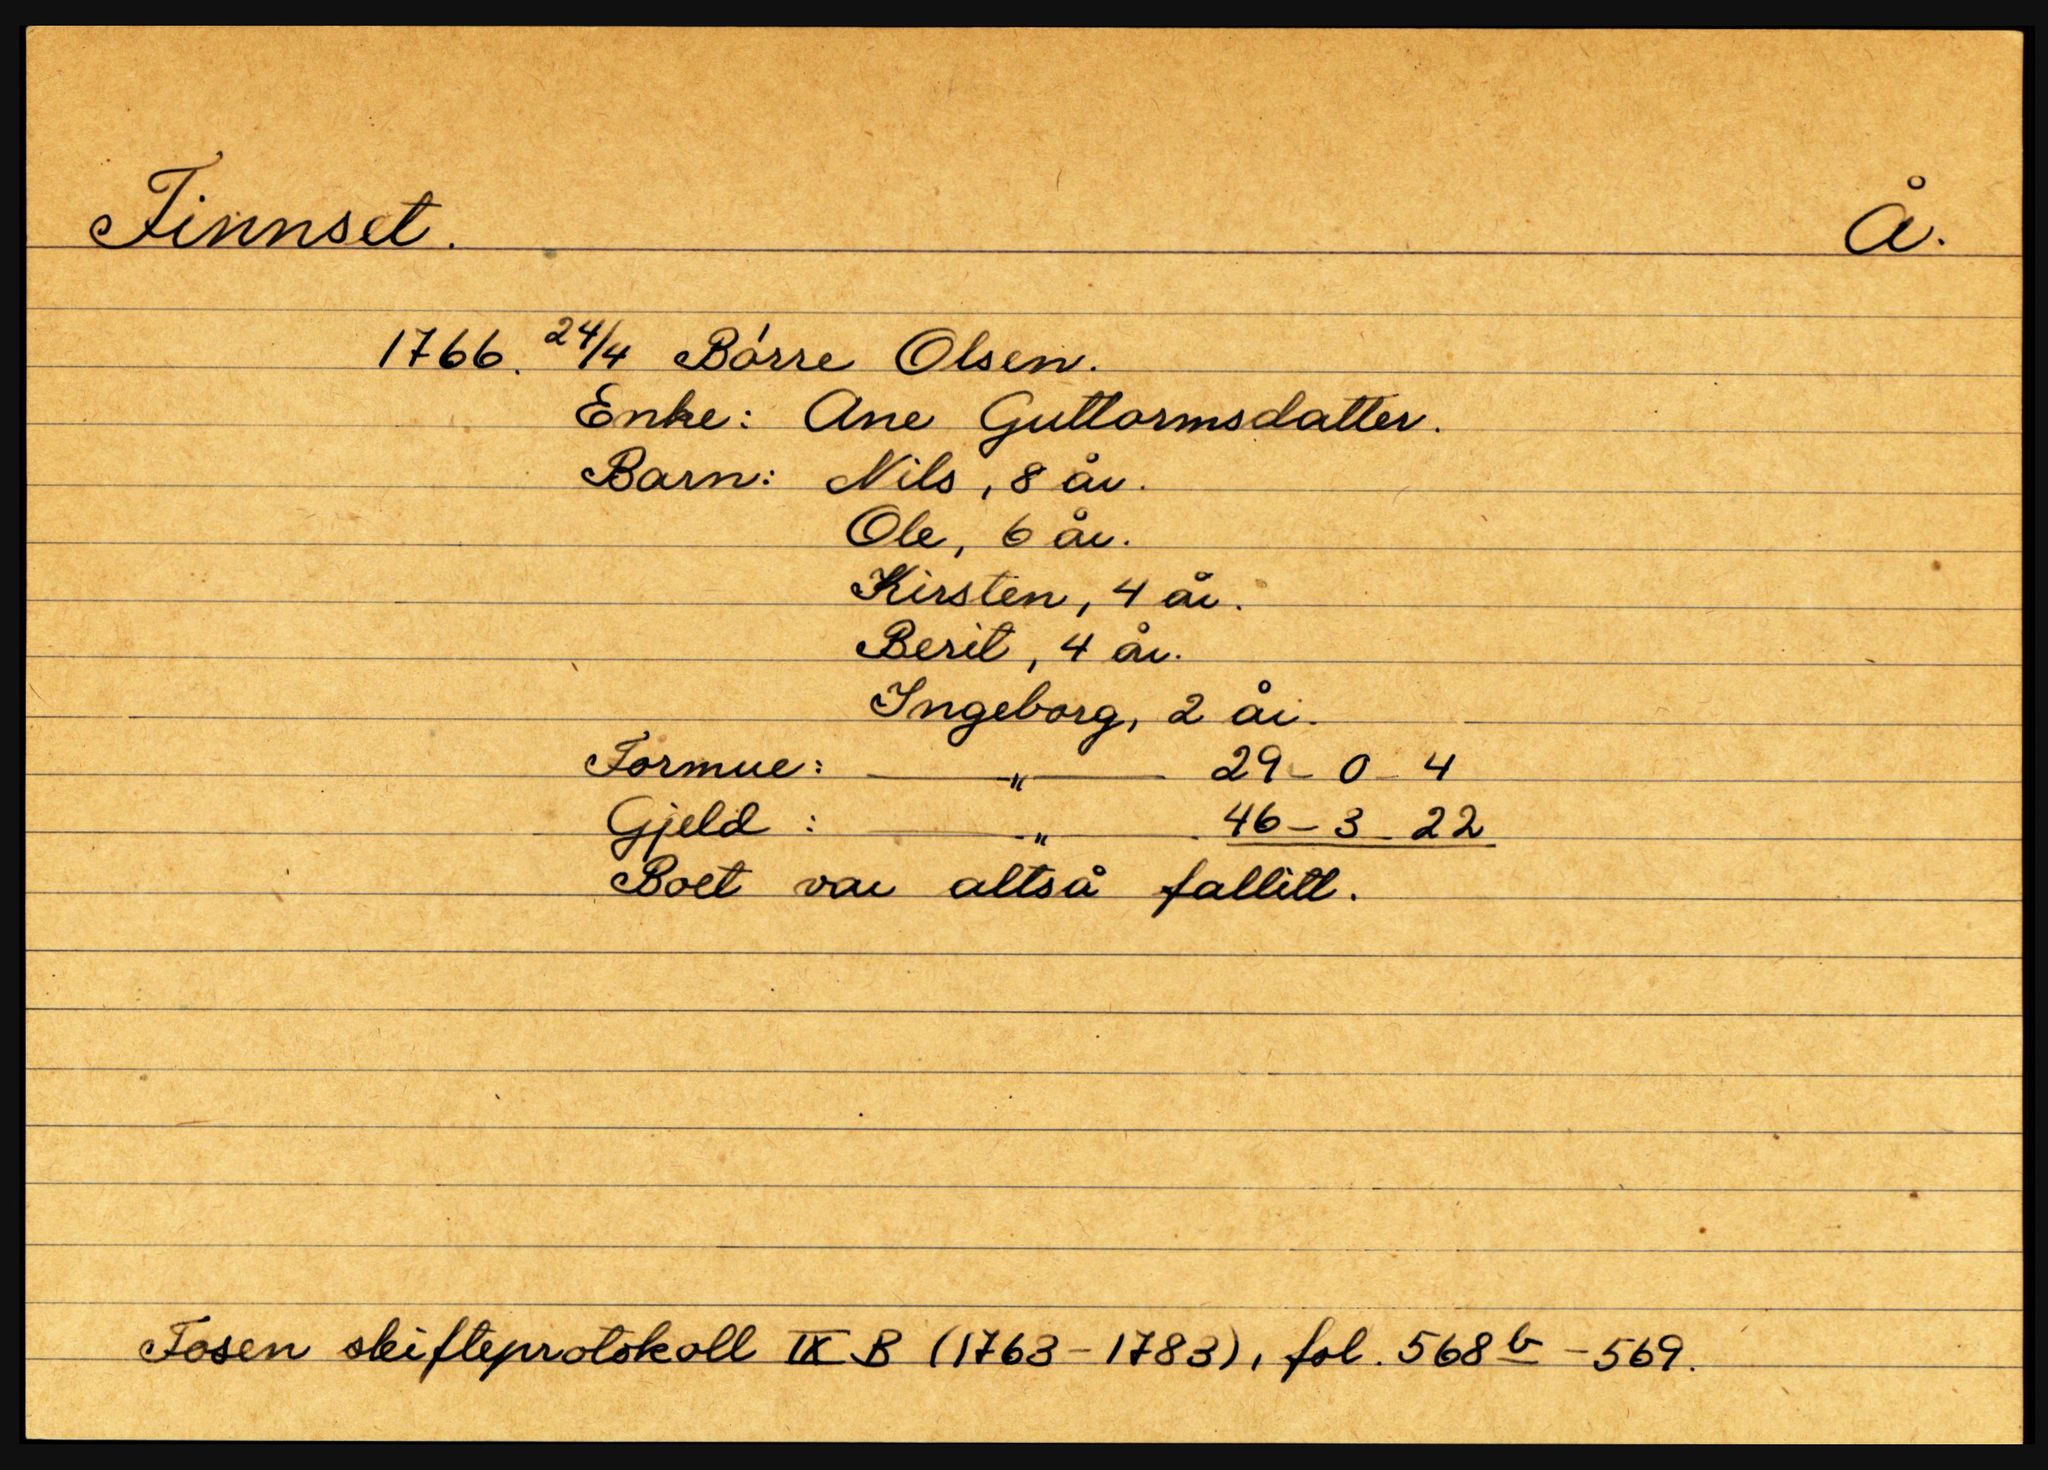 Finnset. Å.
1766. 24/4 Børre Olsen.
Enke: Ane Guttormsdatter.
Barn: Nils, 8 år.
Ole, 6 år.
Kirsten, 4 år.
Berit, 4 år.
Ingeborg, 2 år.
Formue: — „ — 29 - 0 - 4
Gjeld : — „ — 46 - 3 - 22
Boet var altså fallitt.
Fosen skifteprotokoll IX B (1763-1783), fol. 568 b - 569.